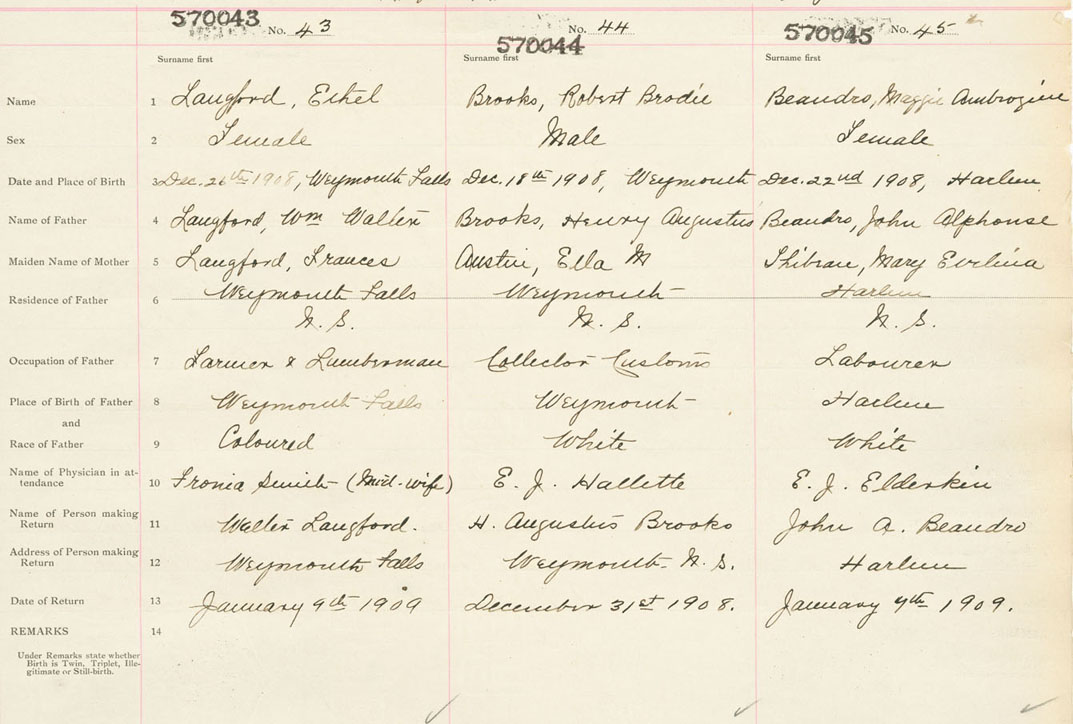 570043 No. 43
570044 No. 44
570045 No. 45
Surname first Surname first Surname first
Name 1 Langford, Ethel Brooks, Robert Brodie Beandro, Maggie Ambrozine
Sex 2 Female Male Female
Date and Place of Birth 3 Dec. 26th 1908, Weymouth Falls Dec. 18th 1908, Weymouth Dec. 22nd 1908, Harlem
Name of Father 4 Langford, Wm Walter Brooks, Henry Augustus Beandro, John Alphonse
Maiden Name of Mother 5 Langford, Frances Austin, Ella M Thibeau, Mary Evelina
Residence of Father 6 Weymouth Falls Weymouth Harlem
N. S. N. S. N. S.
Occupation of Father 7 Farmer & Lumberman Collector Customs Labourer
Place of Birth of Father 8 Weymouth Falls Weymouth Harlem
and
Race of Father 9 Coloured White White
Name of Physician in at-
tendance 10 Fronia Smith (Mid-wife) E. J. Hallette E. J. Elderkin
Name of Person making
Return 11 Walter Langford. H. Augustus Brooks John A. Beandro
Address of Person making
Return 12 Weymouth Falls Weymouth N. S. Harlem
Date of Return 13 January 9th 1909 December 31st 1908. January 4th 1909.
REMARKS 14
Under Remarks state whether
Birth is Twin, Triplet, Ille-
gitimate or Still-birth.